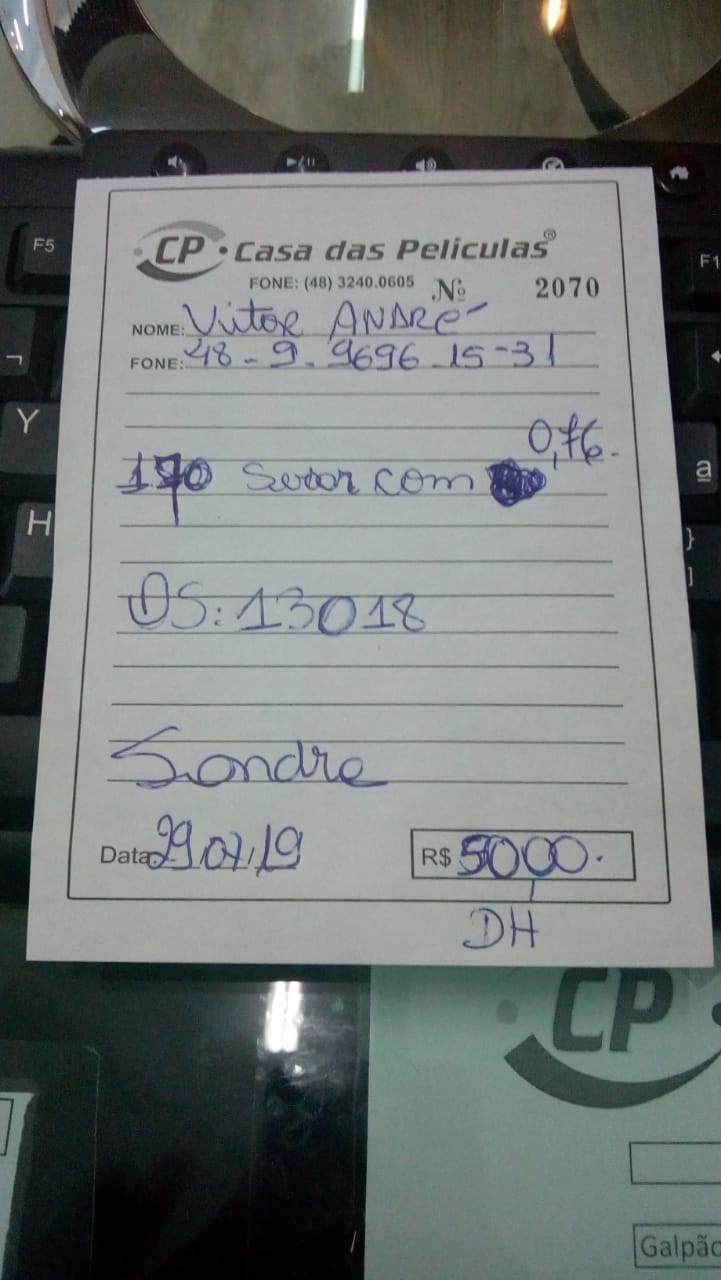 F5
F1
Y
H
ª
}
]
CP Casa das Peliculas®
FONE: (48) 3240.0605 Nº 2070
NOME: Vitor André
FONE: 48-9.9696-15-31
0,76.
com
OS: 13018
Sandra
Data 29/07/19 R$ 5000.
DH
CP
Galpão